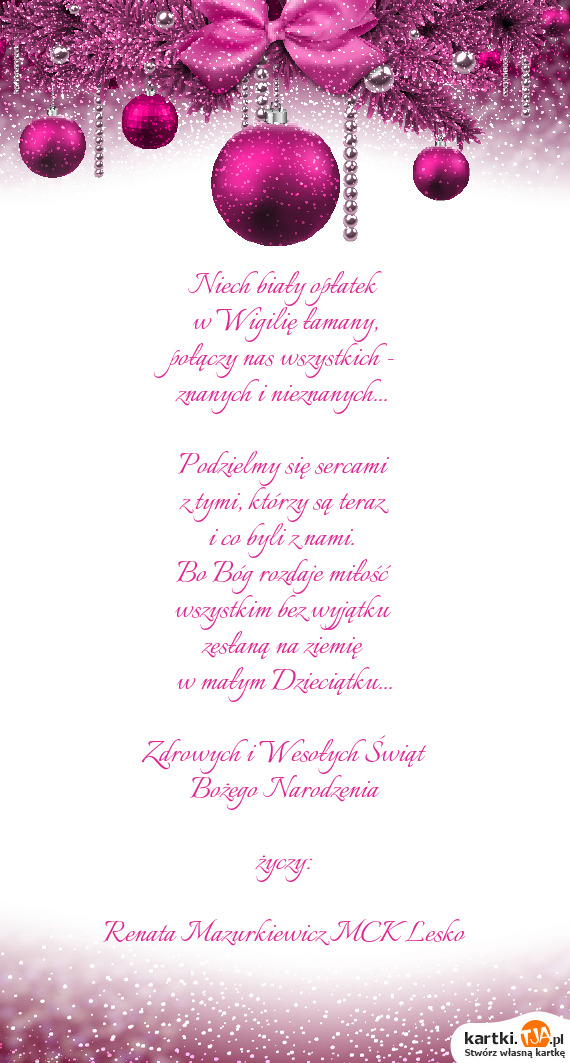 Niech biały opłatek
w Wigilię łamany,
połączy nas wszystkich -
znanych i nieznanych...
Podzielmy się sercami
z tymi, którzy są teraz
i co byli z nami.
Bo Bóg rozdaje miłość
wszystkim bez wyjątku
zesłaną na ziemię
w małym Dzieciątku...
Zdrowych i Wesołych Świąt
Bożego Narodzenia
życzy:
Renata Mazurkiewicz MCK Lesko
kartki.TJA.pl
Stwórz własną kartkę